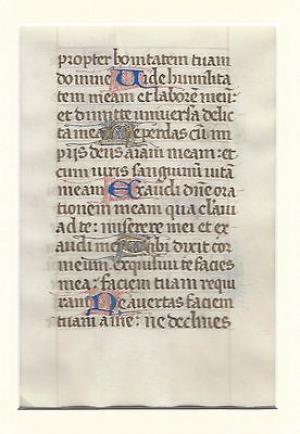 propter bonitatem tuam
domine Vide humilita
tem meam et laborē meū:
et dimitte universa delic
ta mea Ne perdas cū im
piis deus aīam meam: et
cum viris sanguinū vitā
meam Exaudi dn̄e ora
tionem meam qua clam
ad te: miserere mei et ex
audi me Tibi dixit cor
meum exquisivi te facies
mea: faciem tuam requi
ram Ne avertas faciem
tuam a me: ne declines